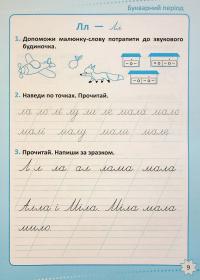 Букварний період
Лл — Лл
1. Допоможи малюнку-слову потрапити до звукового
будиночка.
2. Наведи по точках. Прочитай.
ла ло лі лу ми ле мала мало
малі малу мали мале
3. Прочитай. Напиши за зразком.
А л ла ал лама мала
Алла і Міла. Міла мала
мило.
9